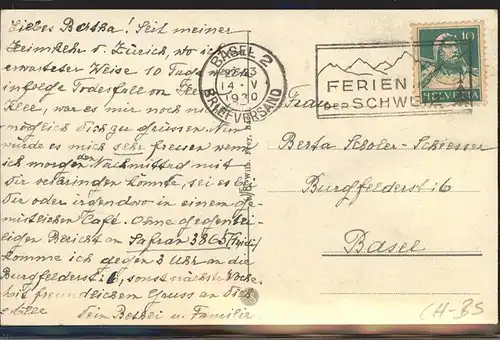 Liebes Bertha! Seit meiner
Heimkehr v. Zürich, wo ich
erwarteter Weise 10 Tage
infolge Todesfall von
war es mir noch
möglich Dich zu grüssen. Nun
würde es mich sehr freuen wenn
ich morgen den Nachmittag mit
Dir verbringen könnte, sei es bei
Dir oder irgendwo in einem ge-
mütlichen Café. Ohne gegentei-
ligen Bericht an Safran 3865
komme ich gegen 3 Uhr an die
Burgfelderstr. 6, sonst nächste Woche.
Mit freundlichem Gruss an Dich
Dein Bethli u. Familie
BASEL 2
14.V
1930
BRIEFVERSAND
FERIEN
DER SCHWEIZ
10
HELVETIA
Frau
Berta Scholer-Schiesser
Burgfelderstr. 6
Basel
CH-BS